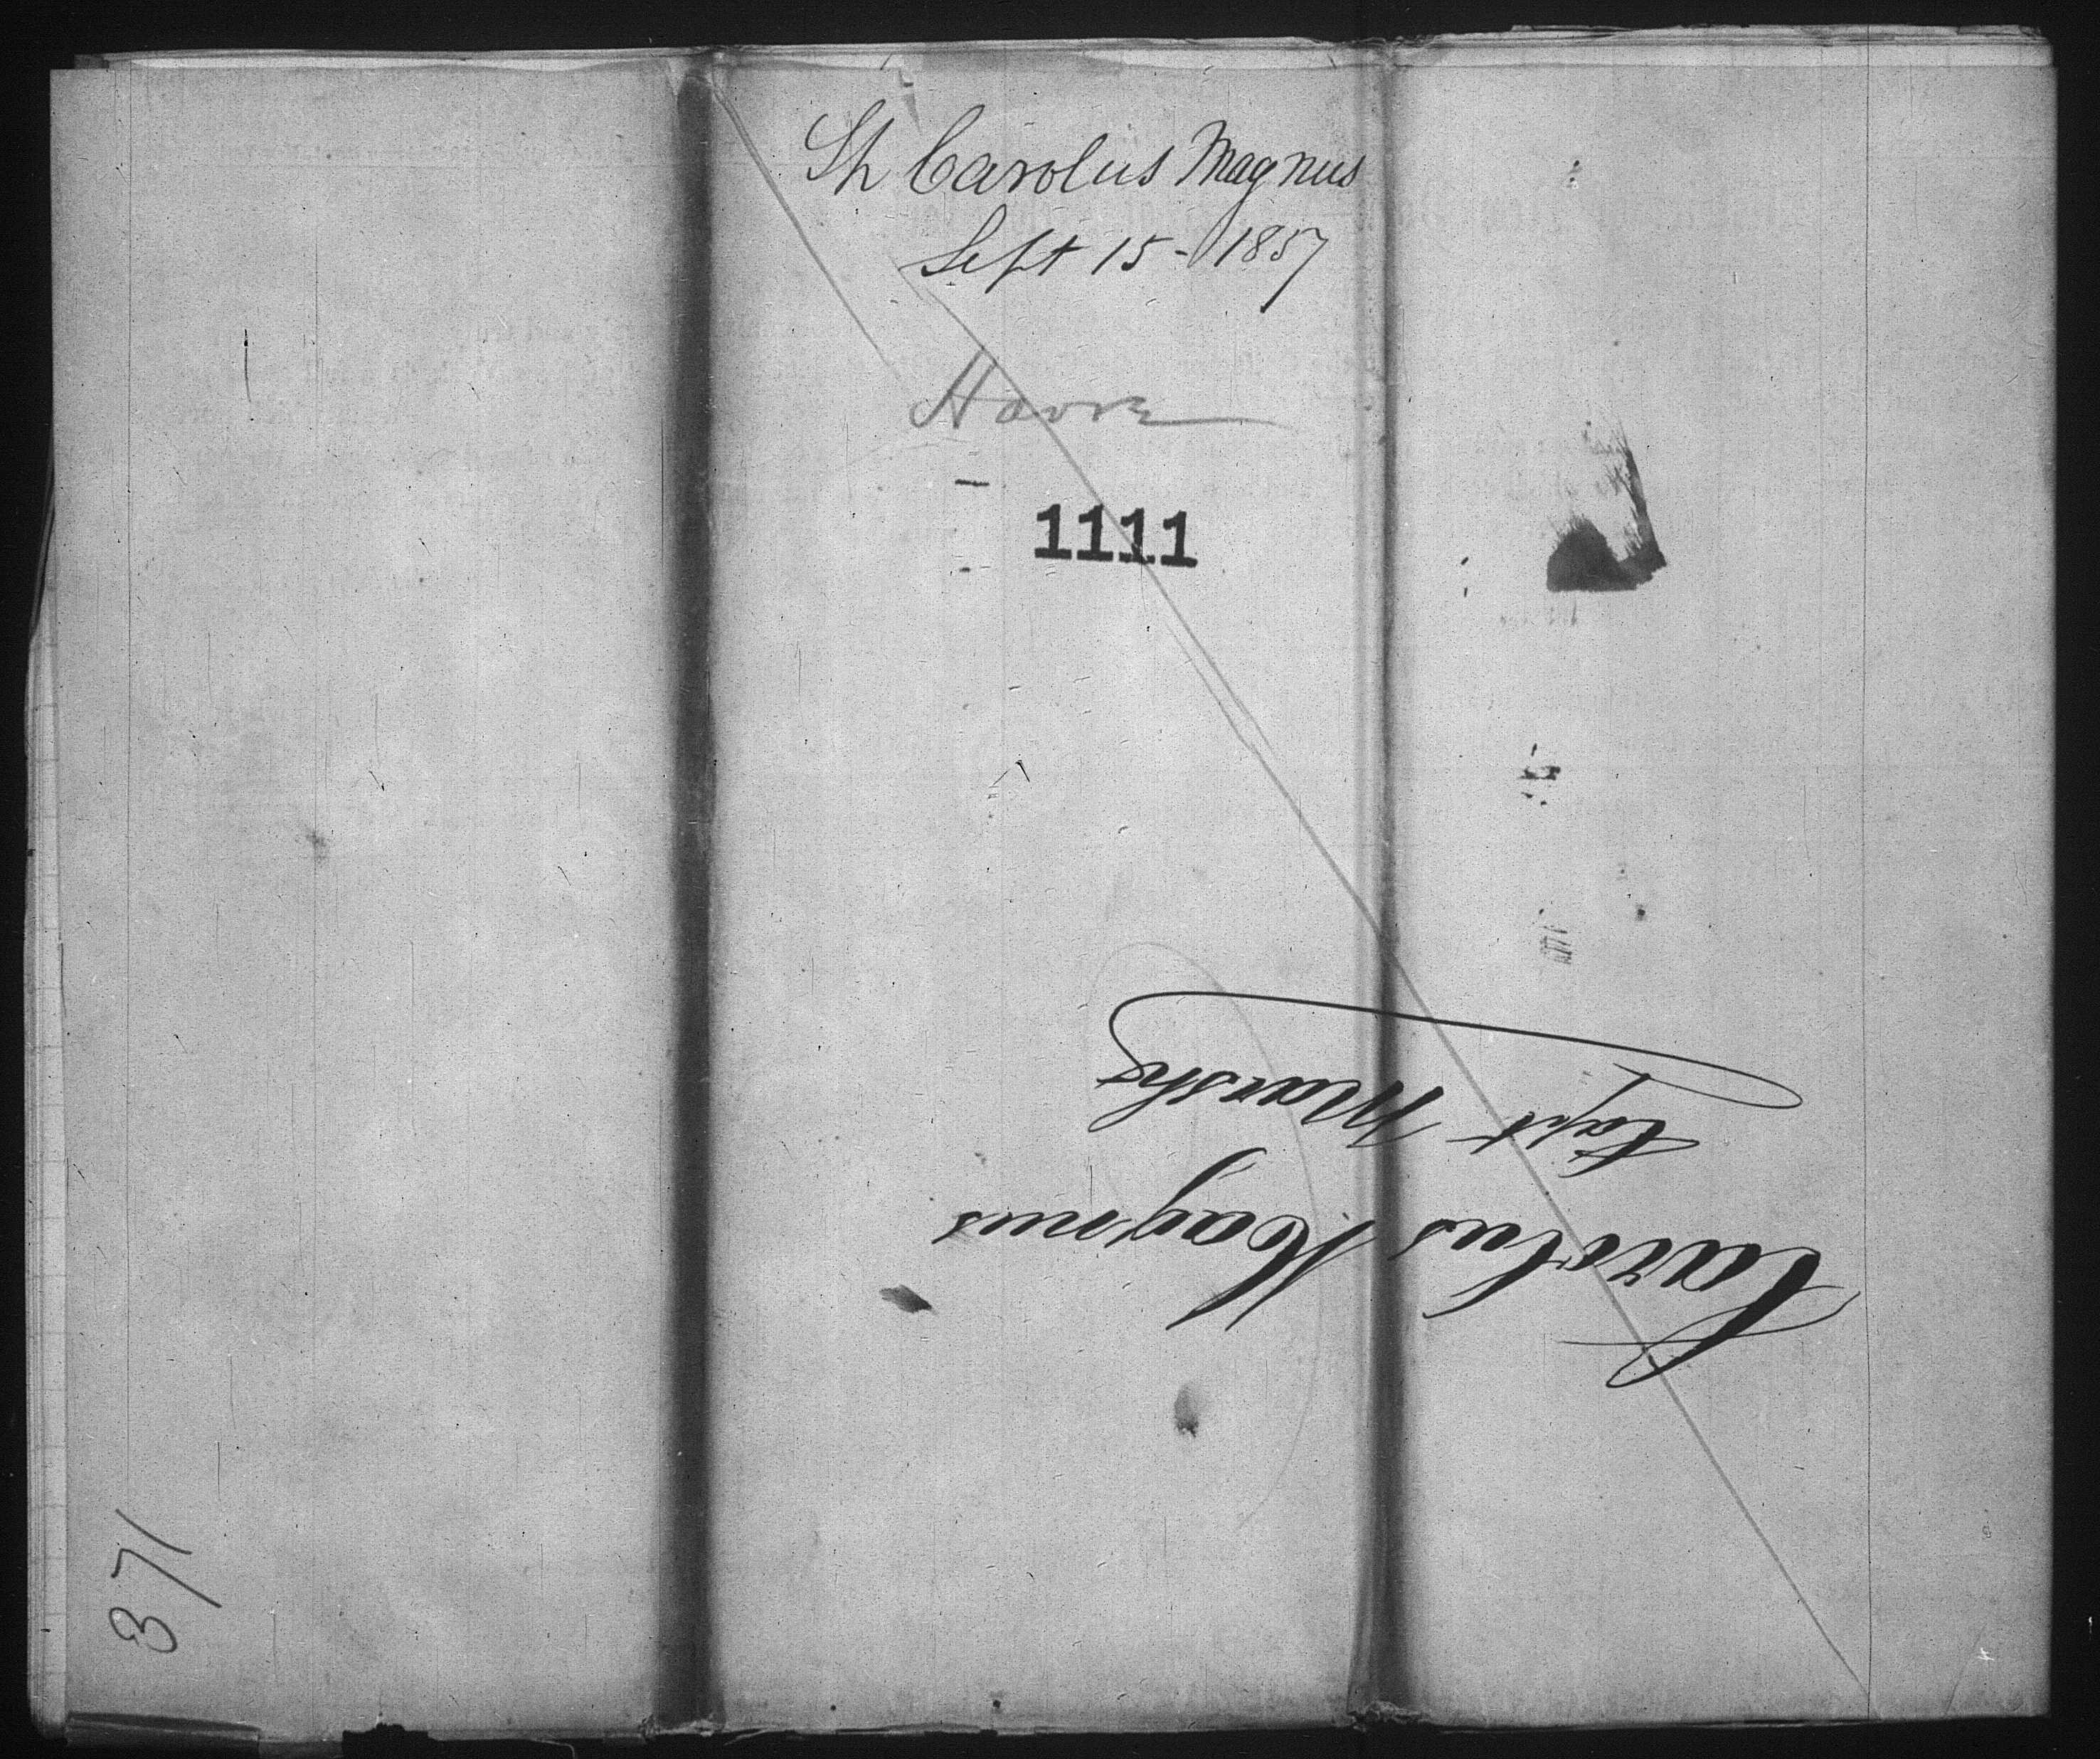 Sh Carolus Magnus
Sept 15 - 1857
Havre
1111
Carolus Magnus
Capt Marshz
371